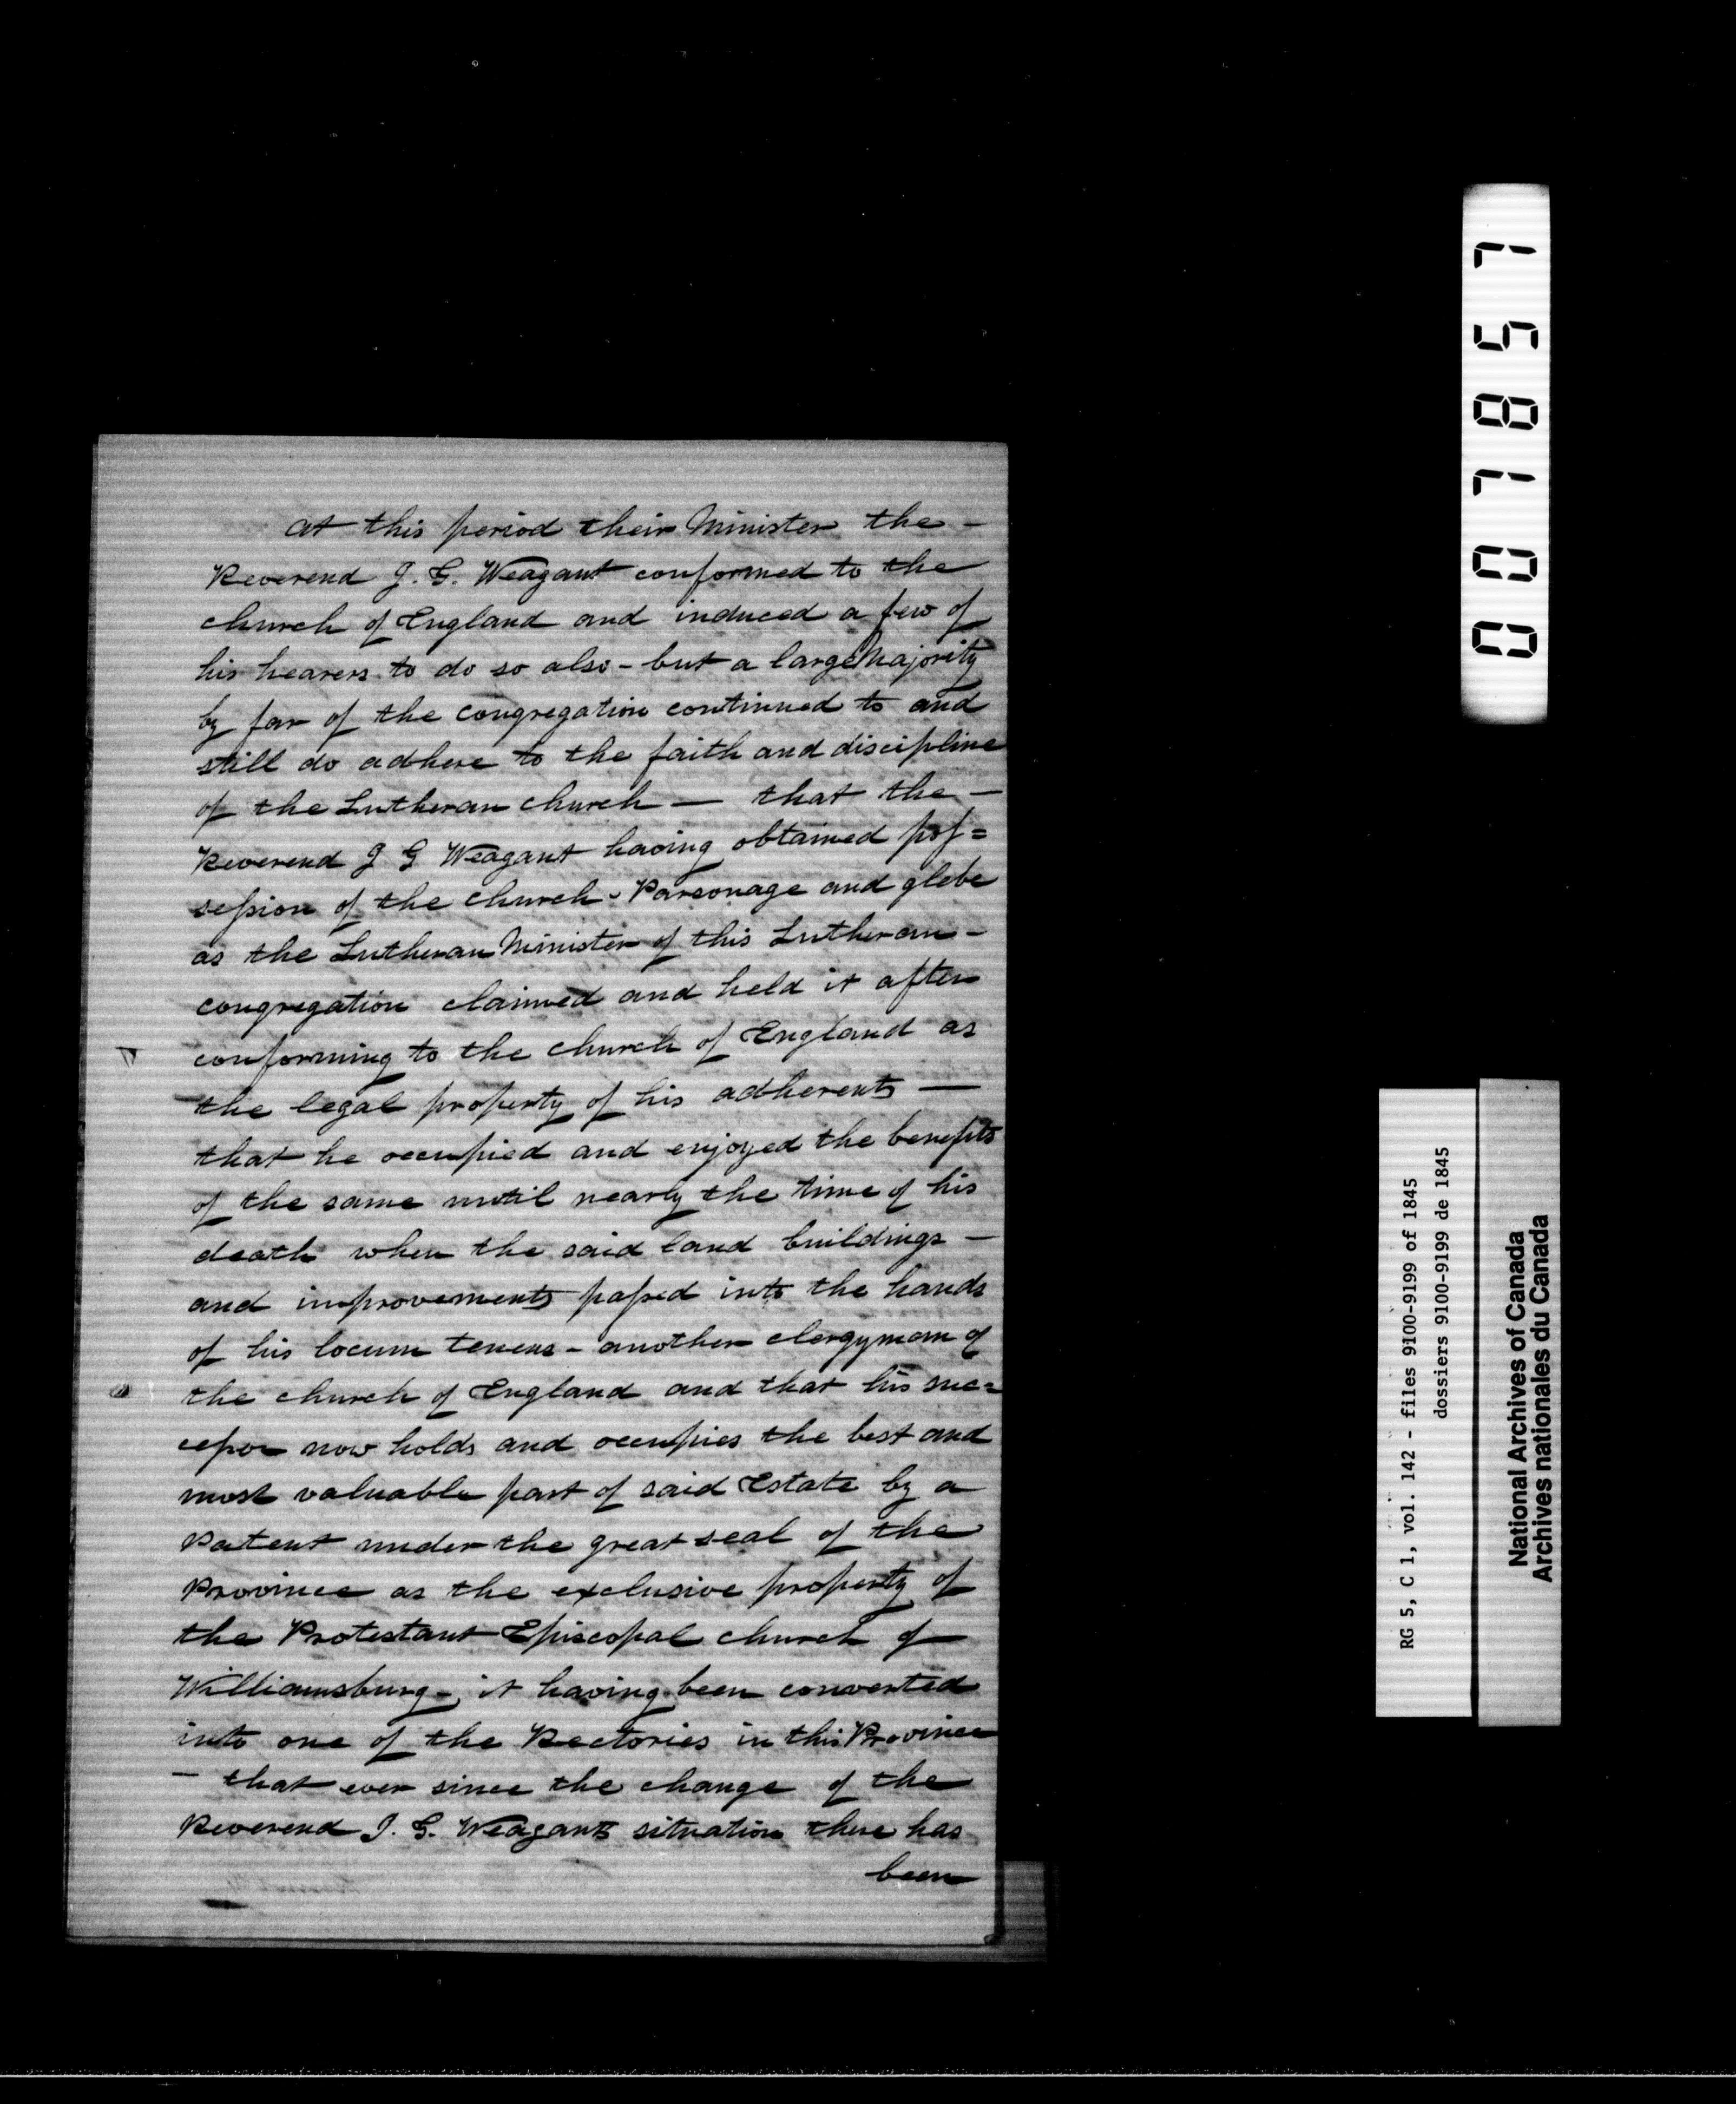 At this period their Minister the -
Reverend J. G. Weagant conformed to the
church of England and induced a few of
his hearers to do so also - but a large Majority
by far of the congregation continued to and
still do adhere to the faith and discipline
of the Lutheran church — that the —
Reverend J G Weagant having obtained pos=
session of the church - Parsonage and glebe
as the Lutheran Minister of this Lutheran -
congregation claimed and held it after
conforming to the church of England as
the legal property of his adherents —
that he occupied and enjoyed the benefits
of the same until nearly the time of his
death when the said land buildings —
and improvements passed into the hands
of his locum tenens - another clergyman of
the church of England and that his suc=
cessor now holds and occupies the best and
most valuable part of said Estate by a
Patent under the great seal of the
Province as the exclusive property of
the Protestant Episcopal church of
Williamsburg -, it having been converted
into one of the Rectories in this Province
— that ever since the change of the
Reverend J. G. Weagants situation there has
been
007857
RG 5, C 1, vol. 142 - files 9100-9199 of 1845
dossiers 9100-9199 de 1845
National Archives of Canada
Archives nationales du Canada